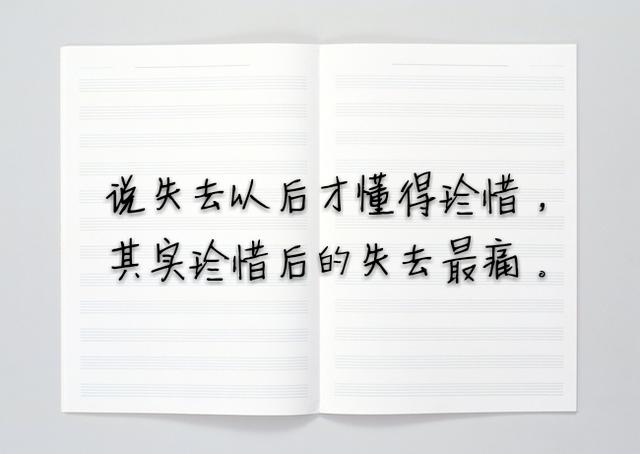 说失去以后才懂得珍惜，
其实珍惜后的失去最痛。